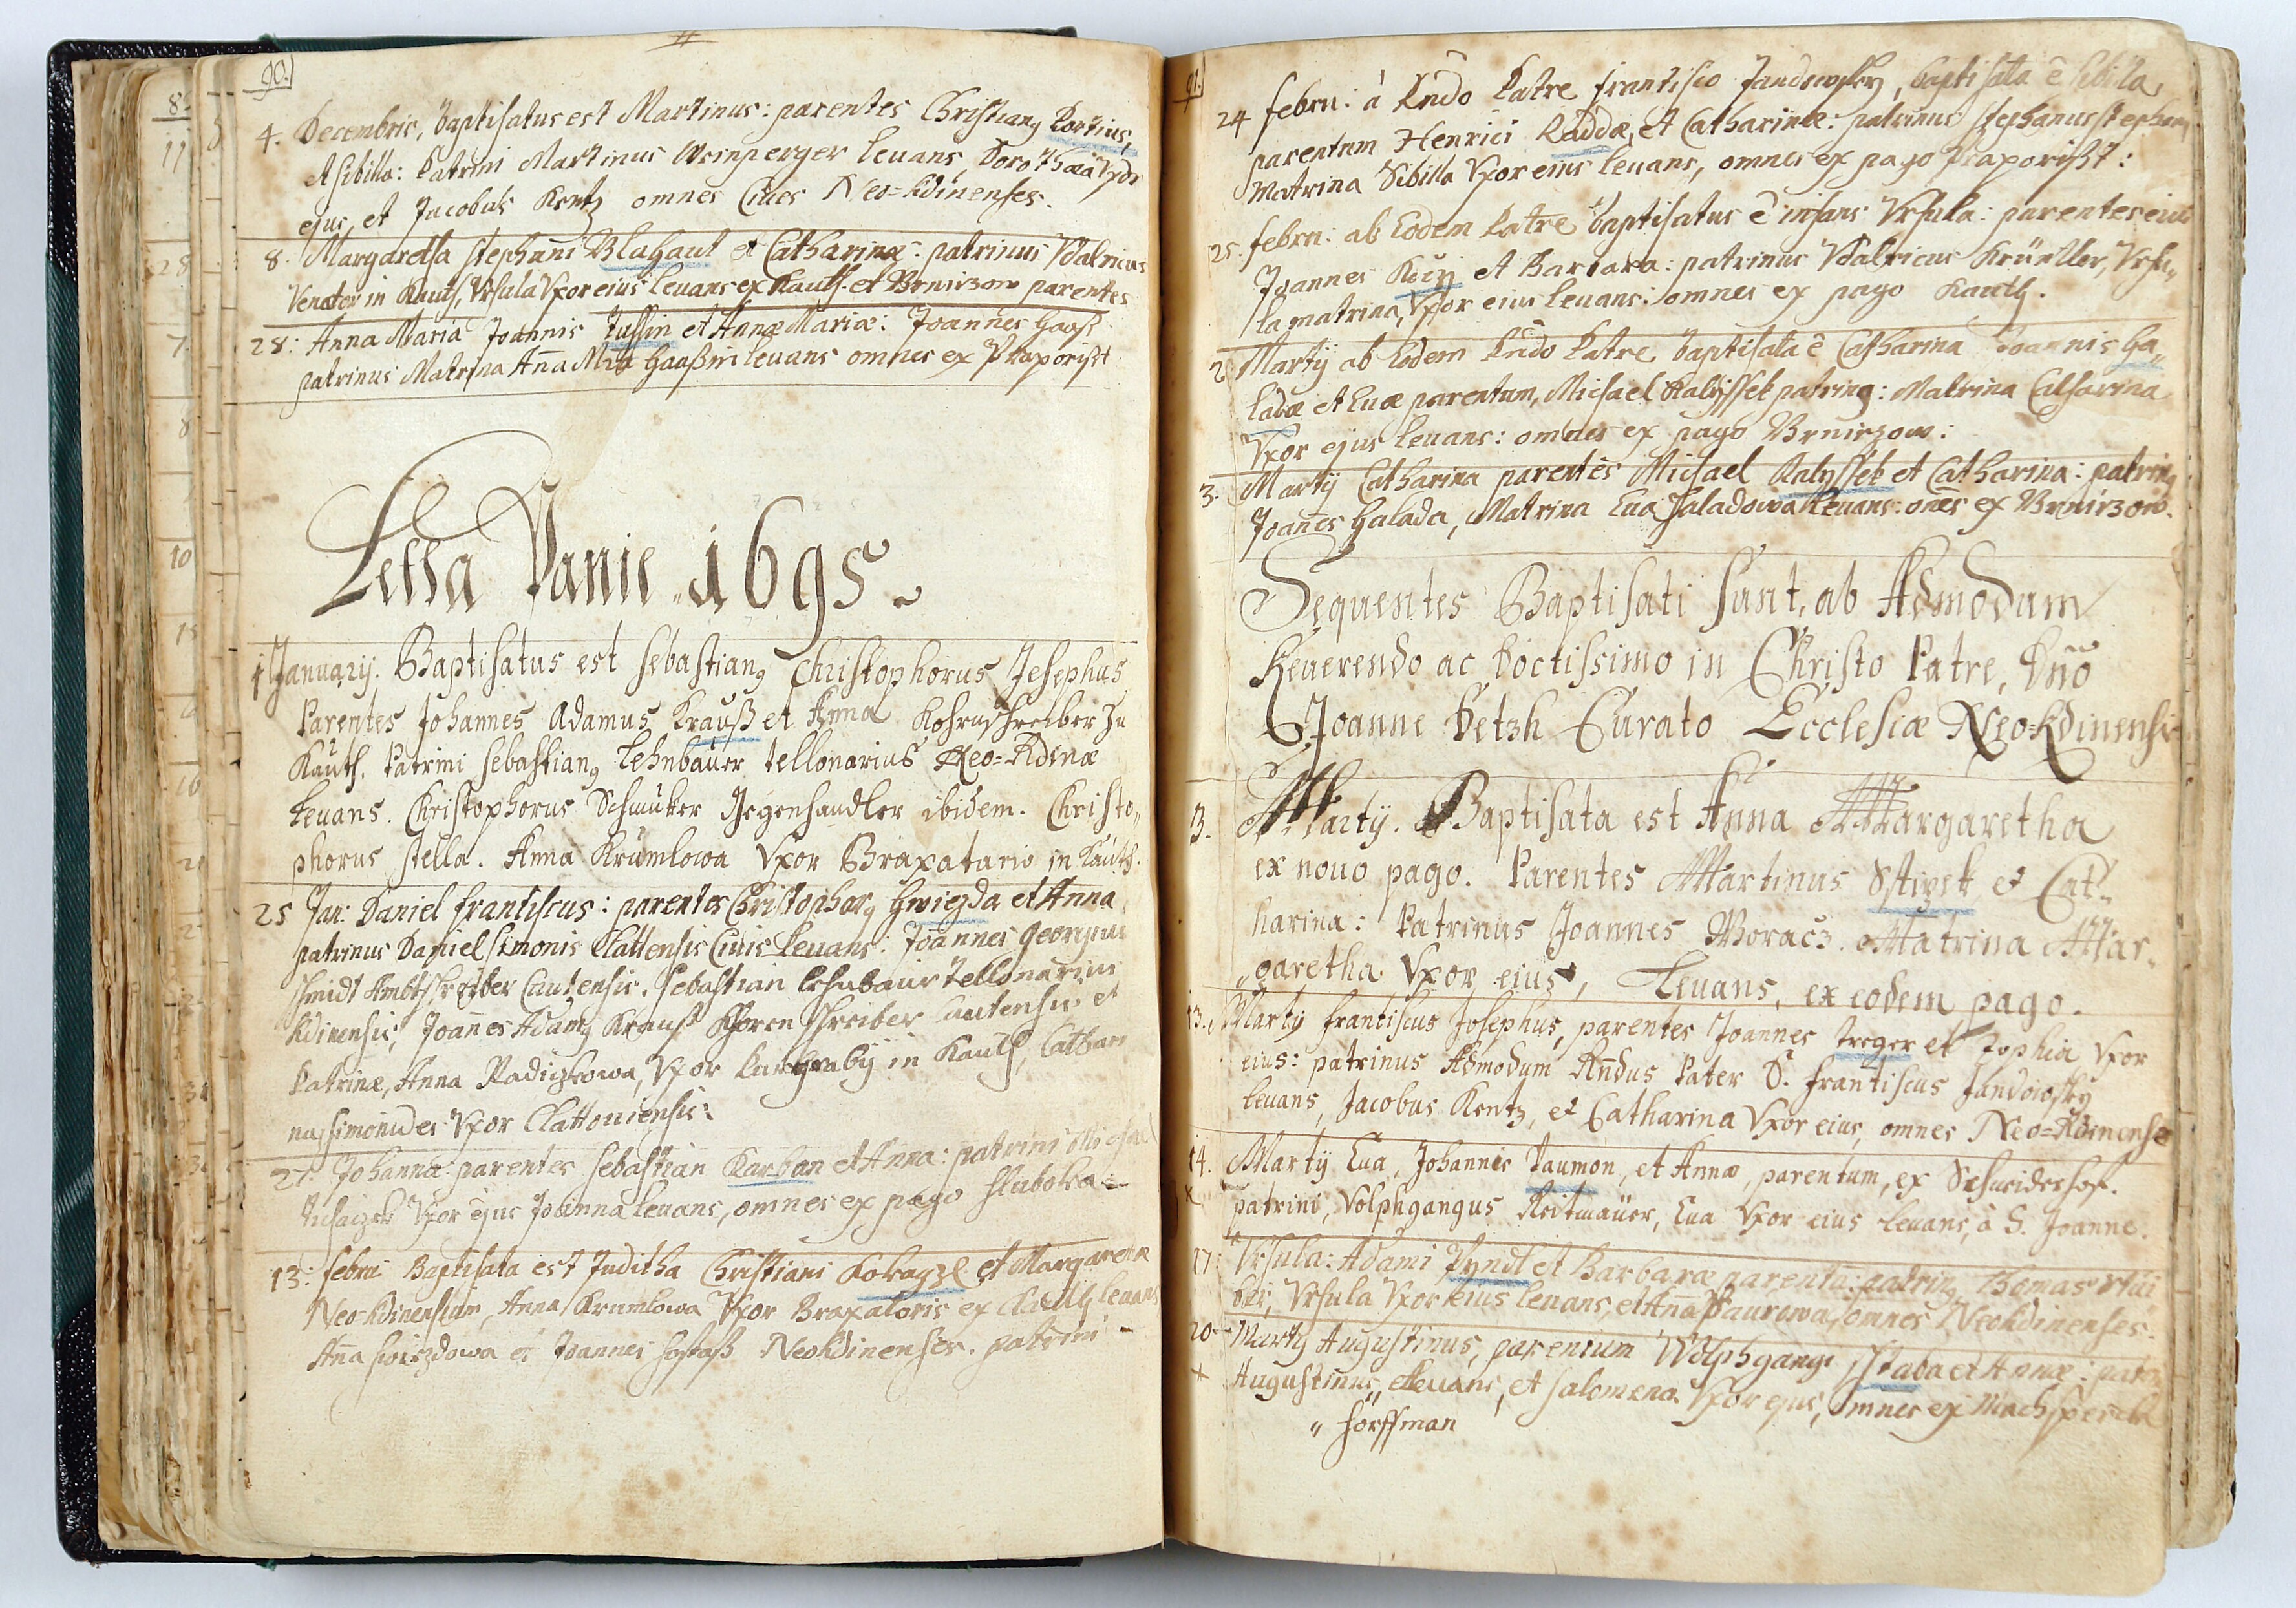 90.
4. Decembris, baptisatus est Martinus: parentes Christianꝯ Portius,
et Sibilla: Patrini Martinus Weinperger levans, Dorothaea Vxor
ejus, et Jacobus Kentz omnes Cives Neo=Kdinenses.
8. Margaretha Stephani Blahaut et Catharinæ: patrinus Vdalricus
Venator in Kauth, Vrsula Vxor eius levans ex Kauth et Brnirzow parentes
28: Anna Maria Joannis Tussin et Annæ Mariæ: Joannes Haasz
patrinus Matrina Ana Mria Haaßin levans omnes ex Praporißt
Letha Panie 1695.
1 January. Baptisatus est Sebastianꝯ Christophorus Josephus
Parentes Johannes Adamus Krauß et Anna Kohrnschreiber In
Kauth. Patrini Sebastianꝯ Lehnbauer tellonarius Neo=Kdinæ
Levans. Christophorus Schmuker Gegenhandler ibidem. Christo„
phorus Stella. Anna Krumlowa Vxor Braxatario in Kauth.
25 Jan: Daniel Frantiscus: parentes Christophorꝯ Hwiezda et Anna
patrinus Daniel Simonis Clattensis Civis Levans: Joannes Georgius
Schmidt Ambtschreiber Cautensis. Sebastian Lehnbaur Tellonarius
Kdinensis, Joannes Adamꝯ Krauß Khornschreiber Cautensis et
Patrinæ, Anna Radiczkowa, Vxor Purgraby in Kauth, Cathari
na Simonides Vxor Clattoviensis:
27: Johanna parentes Sebastian Karban et Anna: patrini Michael
Vxor ejus Joanna levans, omnes ex pago Hluboka
13: Febru Baptisata est Juditha Christiani Kokagzl et Margarethæ
Neo-Kdinensium, Anna Krumlowa Vxor Braxatoris ex Kauth levans
Ana Hwiezdowa et Joannes Hostaß Neokdinenses. patrini
91.
24 Febru: à Rndo Patre Frantisco Jandowsky, baptisata ẽ Sibilla
parentum Henrici Raddæ, et Catharinæ: patrinus Stephanus Stephan
Matrina Sibilla Vxor eius levans, omnes ex pago Praporißt:
25. Febru: ab Eodem Patre baptisatus ẽ infans Vrsula: parentes eius
Joannes Kocy et Barbara: patrinus Vdalricus Krüntler, Vrsu„
la matrina, Vxor eius levans: omnes ex pago Kauth.
2. Martij ab Eodem Rndo Patre baptisata ẽ Catharina Joannis Ha„
ladæ et Evæ parentum, Michael Kalyssek patrinꝯ: Matrina Catharina
Vxor ejus levans: omnes ex pago Brnirzow:
3. Martij Catharina parentes Michael Kalyssek et Catharina: patrinꝯ
Joanes Halada, Matrina Eva Haladowa levans: ones ex Brnirzow.
Sequentes Baptisati sunt, ab Admodum
Reverendo ac Doctissimo in Christo Patre, Dno
Joanne Petzh Curato Ecclesiæ Neo=Kdinensis
3. Martij. Baptisata est Anna Margaretha
ex novo pago. Parentes Martinus Sstipek et Cat„
harina: Patrinus Joannes Woracz. Matrina Mar„
„garetha Vxor eius, Levans, ex eodem pago.
13. Martij Frantiscus Josephus, parentes Joannes Treger et Sophia Vxor
eius: patrinus Admodum Rndus Pater D. Frantiscus Jandowsky
levans, Jacobus Kentz, et Catharina Vxor eius, omnes Neo=Kdinense
14. Martij Eva, Johannis Taumon, et Annæ, parentum, ex Schneiderhof.
x patrini, Volphgangus Reitmaüer, Eva Vxor eius levans, à S. Joanne.
17: Vrsula: Adami Pyndl et Barbaræ parentu: patrinꝯ Thomas
Vrsula Vxor eius levans, et Ana Paurowa, omnes Neokdinenses.
20 Martij Augustinus, parentum Wolphgangi Staba et Annæ: patrinꝯ
+ Augustinus„ levans, et Salomena Vxor ejus, omnes ex
„ Hörffman